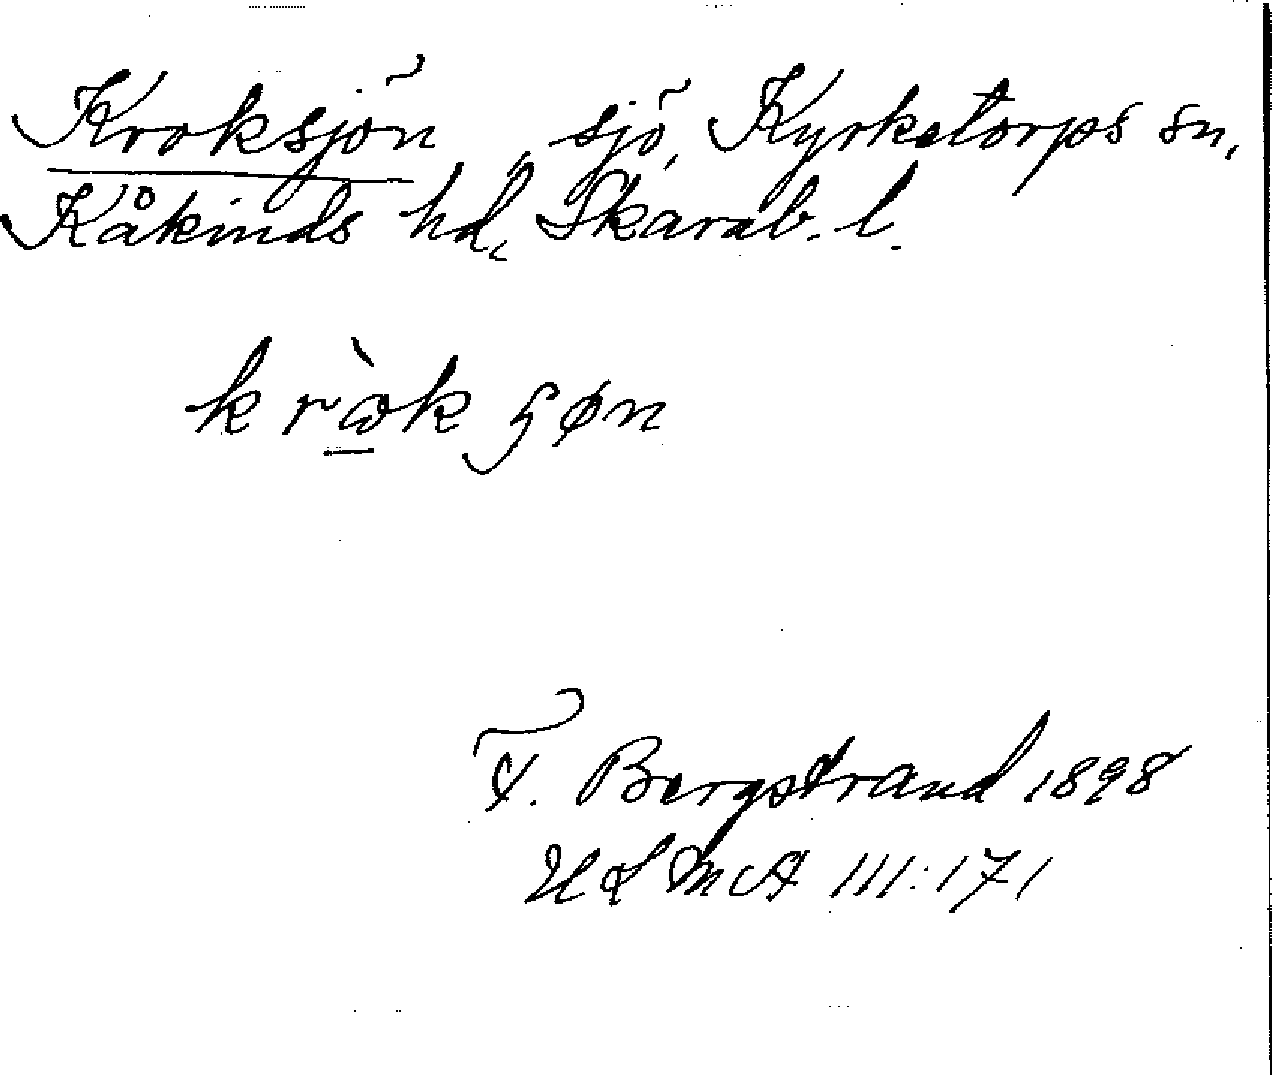 Kroksjön, sjö, Kyrketorps sn,
Kåkinds hd, Skarab. l.
F. Bergstrand 1898
ULMA 111:171